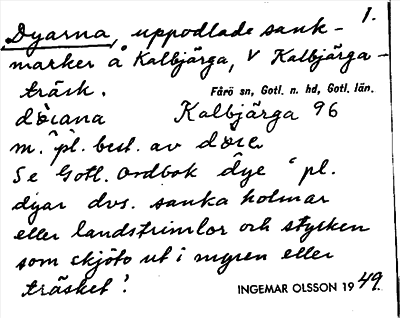 1.
Dyarna, uppodlade sank-
marker å Kalbjärga, V Kalbjärga-
träsk.
Fårö sn, Gotl. n. hd, Gotl. län.
Kalbjärga 96
m. pl. best. av
Se Gotl. ordbok dye " pl.
dyar dvs. sanka holmar
eller landstrimlor och stycken
som skjöto ut i myren eller
träsket".
INGEMAR OLSSON 1949.